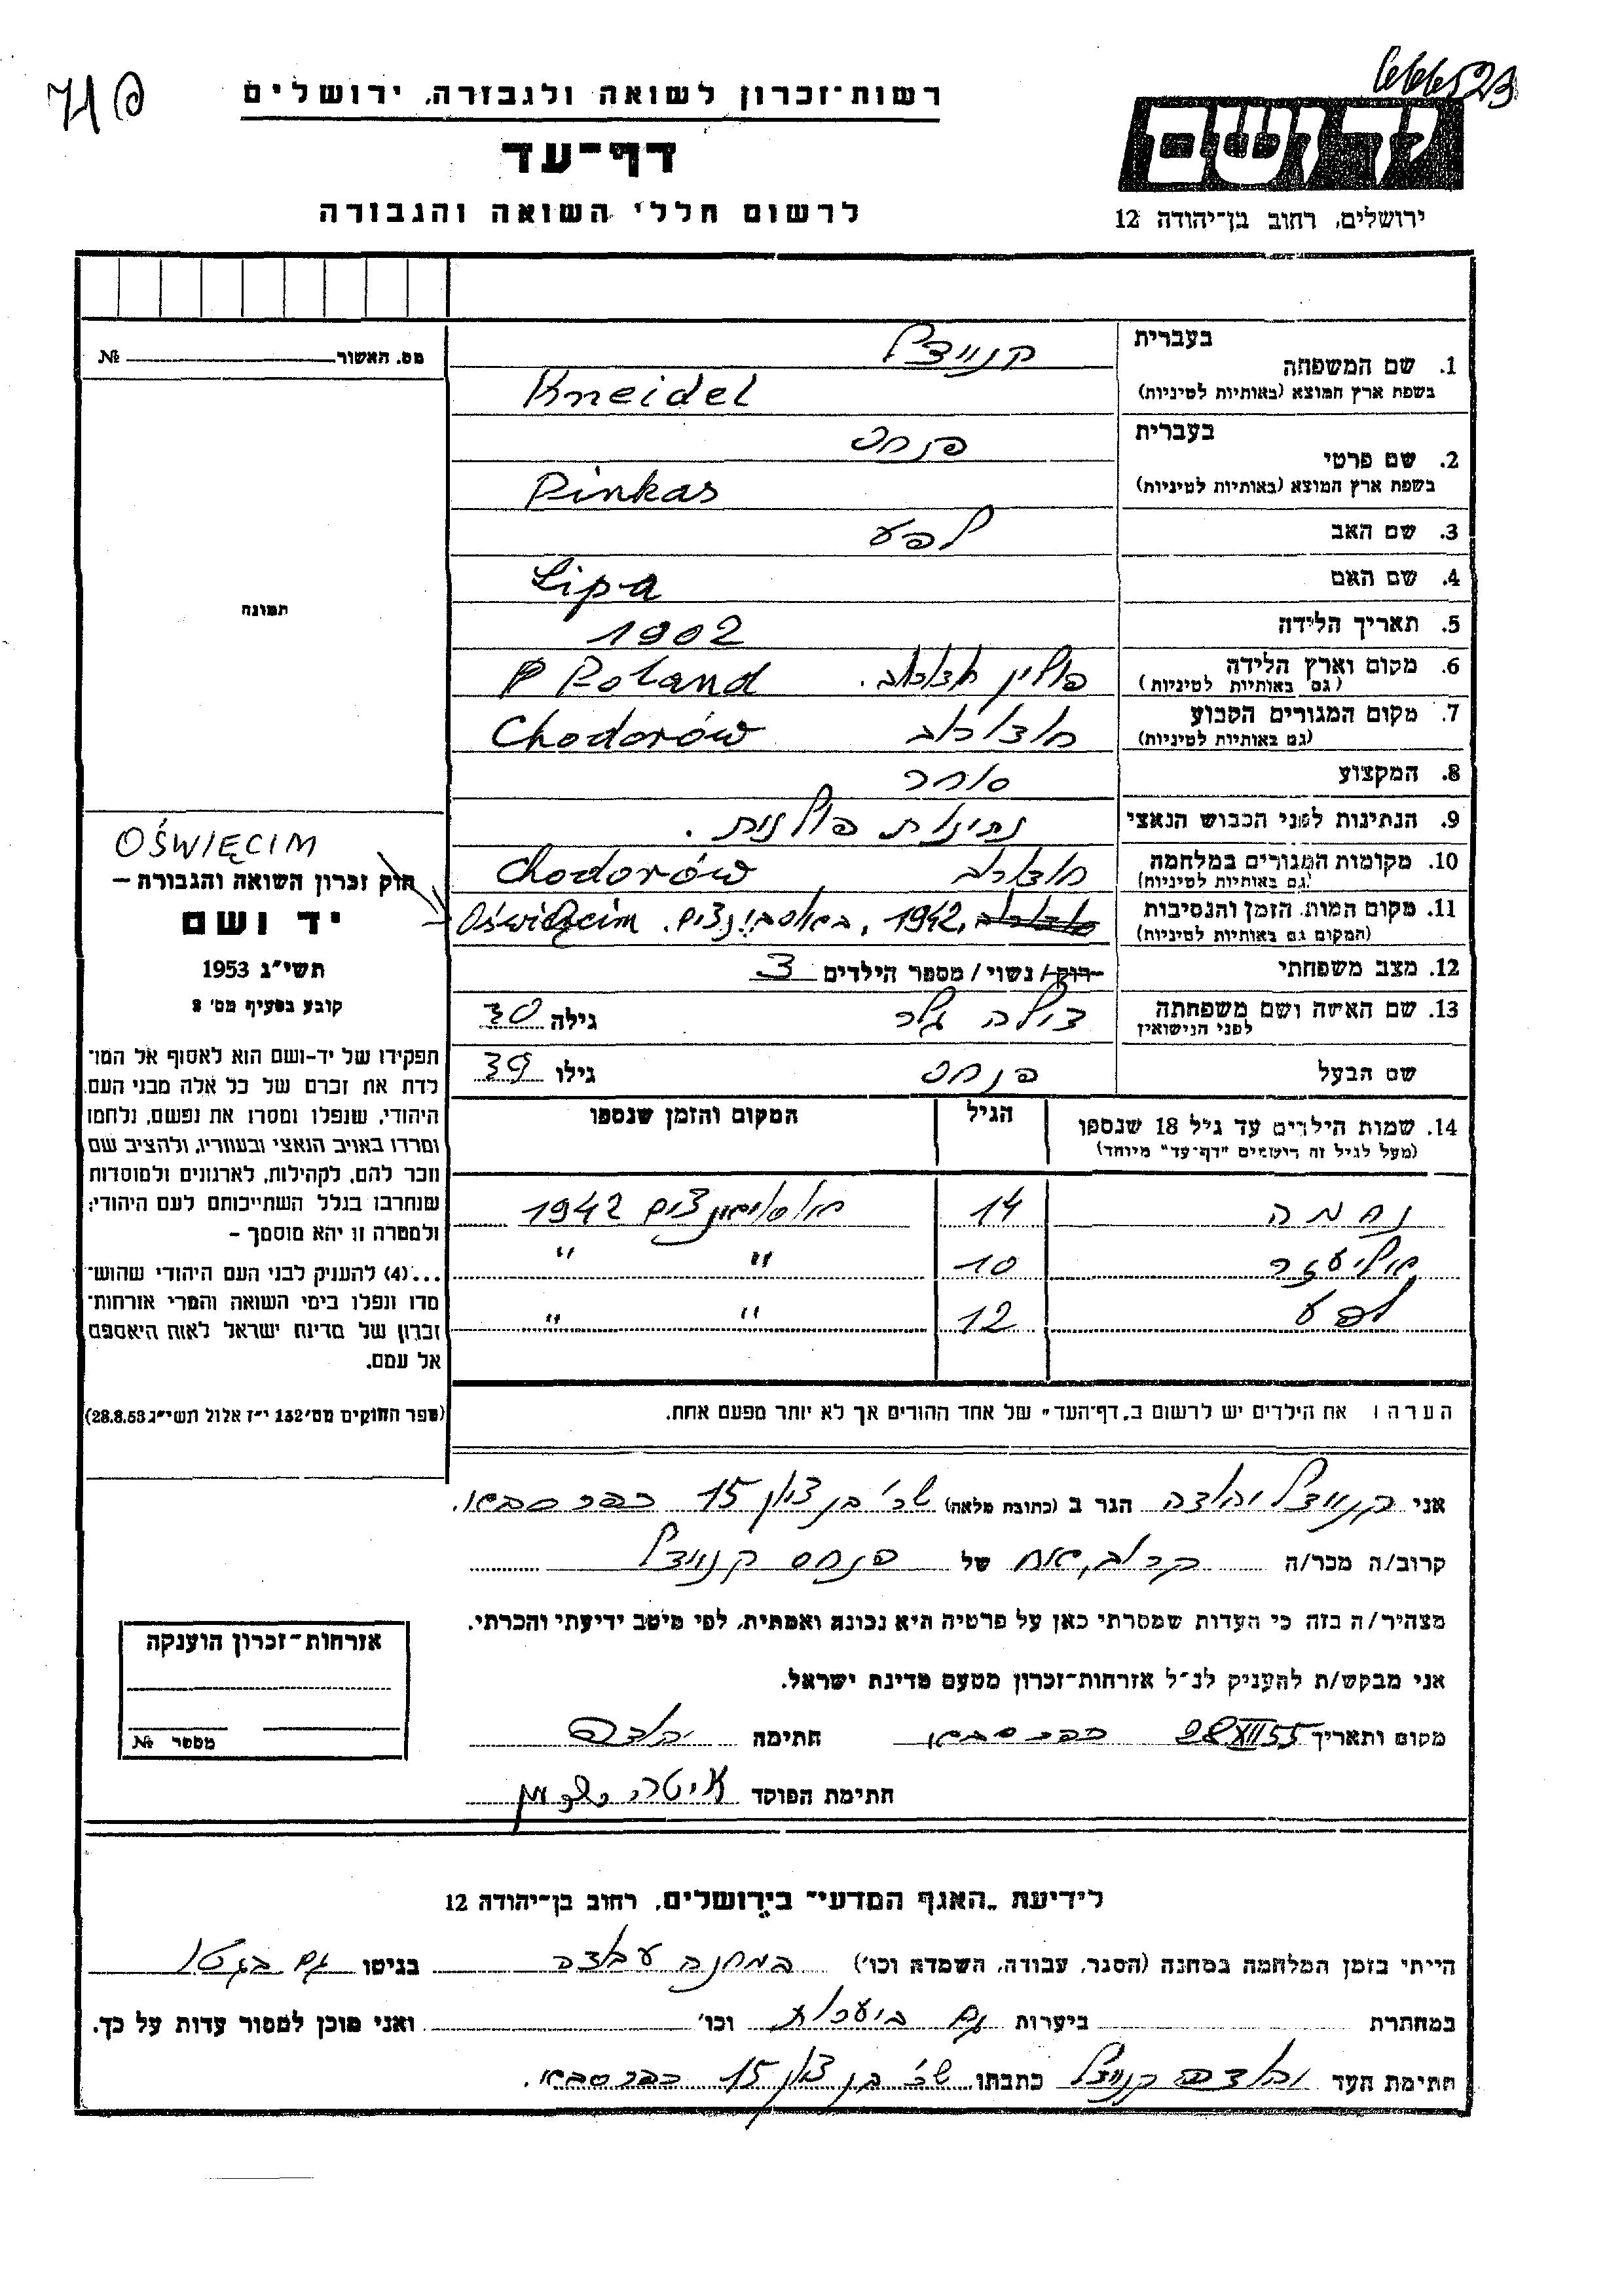 רשות־זכרון לשואה ולגבורה, ירושלים
דף־עד
לרשום חללי השואה והגבורה
יד ושם
ירושלים, רחוב בן־יהודה 12
מס. האשור № 
תמונה
בעברית קניידל
1. שם המשפחה
בשפת ארץ המוצא (באותיות לטיניות) Kneidel
בעברית פנחס
2. שם פרטי
בשפת ארץ המוצא (באותיות לטיניות) Pinkas
3. שם האב ליפע
4. שם האם Lipa
5. תאריך הלידה 1902
6. מקום וארץ הלידה פולין Poland
(גם באותיות לטיניות)
7. מקום המגורים הקבוע Chodorów
(גם באותיות לטיניות)
8. המקצוע סוחר
9. הנתינות לפני הכבוש הנאצי נתינות פולנית.
10. מקומות המגורים במלחמה Chodorów
(גם באותיות לטיניות)
11. מקום המות, הזמן והנסיבות 1942, Oświęcim
(המקום גם באותיות לטיניות)
12. מצב משפחתי רוק/ נשוי/ מספר הילדים 3
13. שם האשה ושם משפחתה גילה 30
לפני הנישואין
שם הבעל פנחס גילו 39
14. שמות הילדים עד גיל 18 שנספו הגיל המקום והזמן שנספו
(מעל לגיל זה רושמים "דף־עד" מיוחד)
נחמה 14 1942
אליעזר 10 " "
ליפע 12 " "
OŚWIĘCIM
חוק זכרון השואה והגבורה –
יד ושם
תשי״ג 1953
קובע בסעיף מס' 2
תפקידו של יד־ושם הוא לאסוף אל המו־
לדת את זכרם של כל אלה מבני העם
היהודי, שנפלו ומסרו את נפשם, נלחמו
ומרדו באויב הנאצי ובעוזריו, ולהציב שם
וזכר להם, לקהילות, לארגונים ולמוסדות
שנחרבו בגלל השתייכותם לעם היהודי;
ולמטרה זו יהא מוסמך –
...(4) להעניק לבני העם היהודי שהוש־
מדו ונפלו בימי השואה והמרי אזרחות־
זכרון של מדינת ישראל לאות היאספם
אל עמם.
(ספר החוקים מס' 132 י״ז אלול תשי״ג 28.8.53)
הערה: את הילדים יש לרשום ב„דף־העד״ של אחד ההורים אך לא יותר מפעם אחת.
אני קניידל יהודה הגר ב (כתובת מלאה) שכ' בן ציון 15 כפר סבא.
קרוב/ה מכר/ה קרוב, אח של פנחס קניידל
מצהיר/ה בזה כי העדות שמסרתי כאן על פרטיה היא נכונה ואמתית, לפי מיטב ידיעתי והכרתי.
אני מבקש/ת להעניק לנ״ל אזרחות־זכרון מטעם מדינת ישראל.
מקום ותאריך 28 XII 55 כפר סבא חתימה יהודה
חתימת הפוקד
אזרחות־זכרון הוענקה
מספר №
לידיעת „האגף המדעי״ בירושלים, רחוב בן־יהודה 12
הייתי בזמן המלחמה במחנה (הסגר, עבודה, השמדה וכו') במחנה עבודה בגיטו גם בגטו
במחתרת ביערות גם ביערות וכו' ואני מוכן למסור עדות על כך.
חתימת העד יהודה קניידל כתבתו שכ' בן ציון 15 כפר סבא.